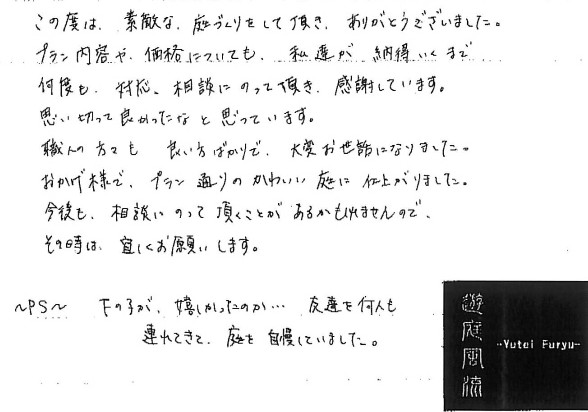 この度は、素敵な、庭づくりをして頂き、ありがとうございました。
プラン内容や、価格についても、私達が納得いくまで
何度も、対応、相談にのって頂き、感謝しています。
思い切って良かったなと思っています。
職人の方々も 良い方ばかりで、大変お世話になりました。
おかげ様で、プラン通りのかわいい庭に仕上がりました。
今後も、相談にのって頂くことがあるかも知れませんので、
その時は、宜しくお願いします。
〜PS〜 下の子が、嬉しかったのか… 友達を何人も
連れてきて、庭を自慢していました。
遊庭風流
-Yutei Furyu-